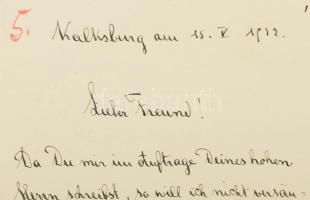 5.
Kalksburg am 15. V 1912.
Lieber Freund!
Da Du mir im Auftrage Deines hohen
Herrn schreibst, so will ich nicht versäu=